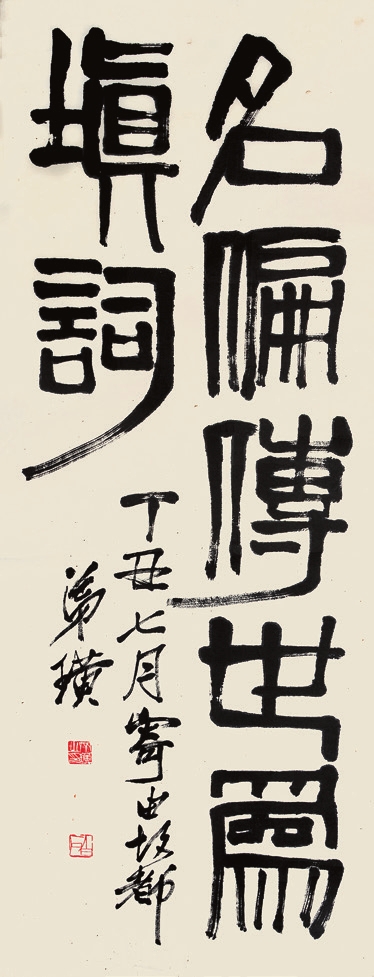 名偏傳世爲
填詞
丁丑七月寄由故都
弟璜